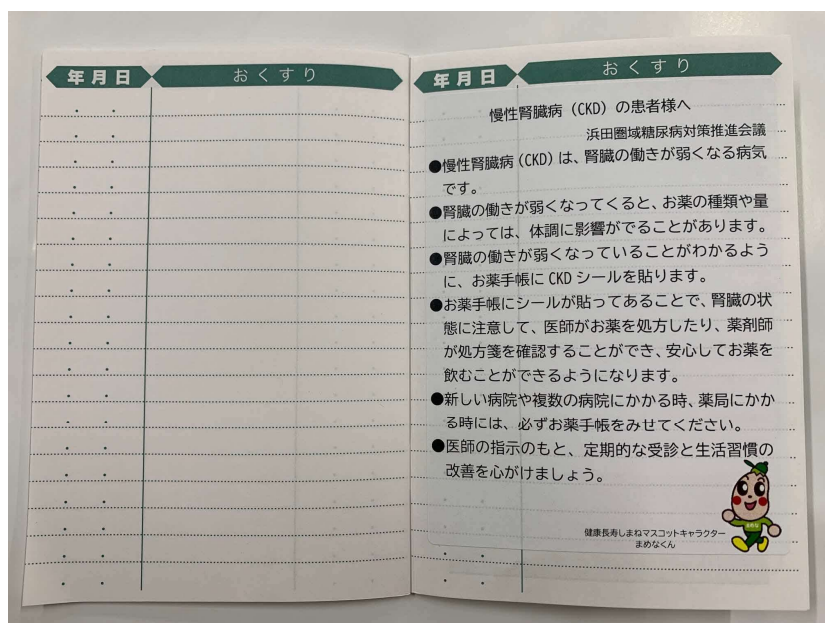 年月日
おくすり
年月日
おくすり
慢性腎臓病（CKD）の患者様へ
浜田圏域糖尿病対策推進会議
●慢性腎臓病（CKD）は、腎臓の働きが弱くなる病気
です。
●腎臓の働きが弱くなってくると、お薬の種類や量
によっては、体調に影響がでることがあります。
●腎臓の働きが弱くなっていることがわかるよう
に、お薬手帳に CKD シールを貼ります。
●お薬手帳にシールが貼ってあることで、腎臓の状
態に注意して、医師がお薬を処方したり、薬剤師
が処方箋を確認することができ、安心してお薬を
飲むことができるようになります。
●新しい病院や複数の病院にかかる時、薬局にかか
る時には、必ずお薬手帳をみせてください。
●医師の指示のもと、定期的な受診と生活習慣の
改善を心がけましょう。
まめな
健康長寿しまねマスコットキャラクター
まめなくん